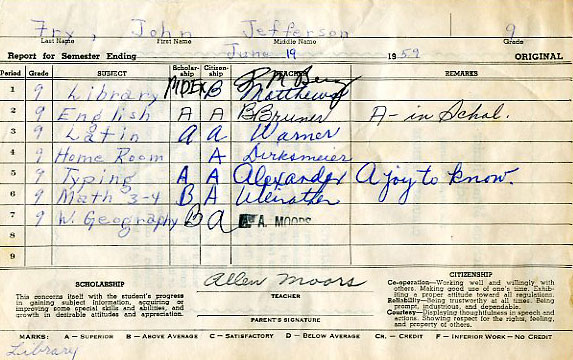 Fry, John Jefferson 9
Last Name First Name Middle Name Grade
Report for Semester Ending June 19 1959 ORIGINAL
Period Grade SUBJECT Scholar-ship Citizen-ship TEACHER REMARKS
1 9 Library B Matthews
2 9 English A A Bruner A- in Schol.
3 9 Latin A A Warner
4 9 Home Room A Dirksmeier
5 9 Typing A A Alexander A joy to know.
6 9 Math 3-4 B A Weirather
7 9 W. Geography B A A. MOORS
8
9
SCHOLARSHIP
This concerns itself with the student's progress
in gaining subject information, acquiring or
improving some special skills and abilities, and
growth in desirable attitudes and appreciation.
Allen Moors
TEACHER
PARENT'S SIGNATURE
CITIZENSHIP
Co-operation—Working well and willingly with
others. Making good use of one's time. Exhib-
iting a proper attitude toward all regulations.
Reliability—Being trustworthy at all times. Being
prompt, industrious, and dependable.
Courtesy—Displaying thoughtfulness in speech and
actions. Showing respect for the rights, feeling,
and property of others.
MARKS: A – SUPERIOR B – ABOVE AVERAGE C – SATISFACTORY D – BELOW AVERAGE CR. – CREDIT F – INFERIOR WORK – NO CREDIT
Library